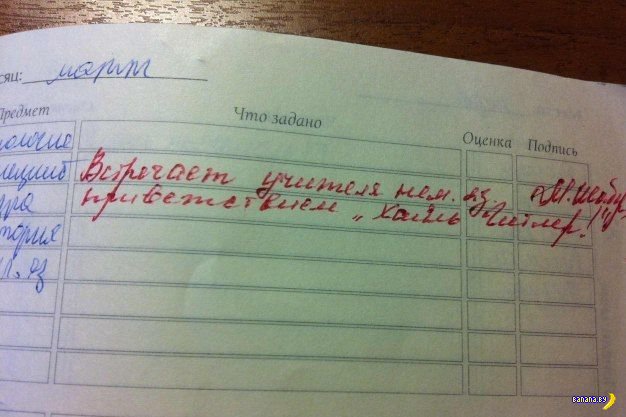 сяц: март
Предмет Что задано Оценка Подпись
ология
Встречает учителя нем. яз
приветствием „Хайль Гитлер!"
тория
banana.by